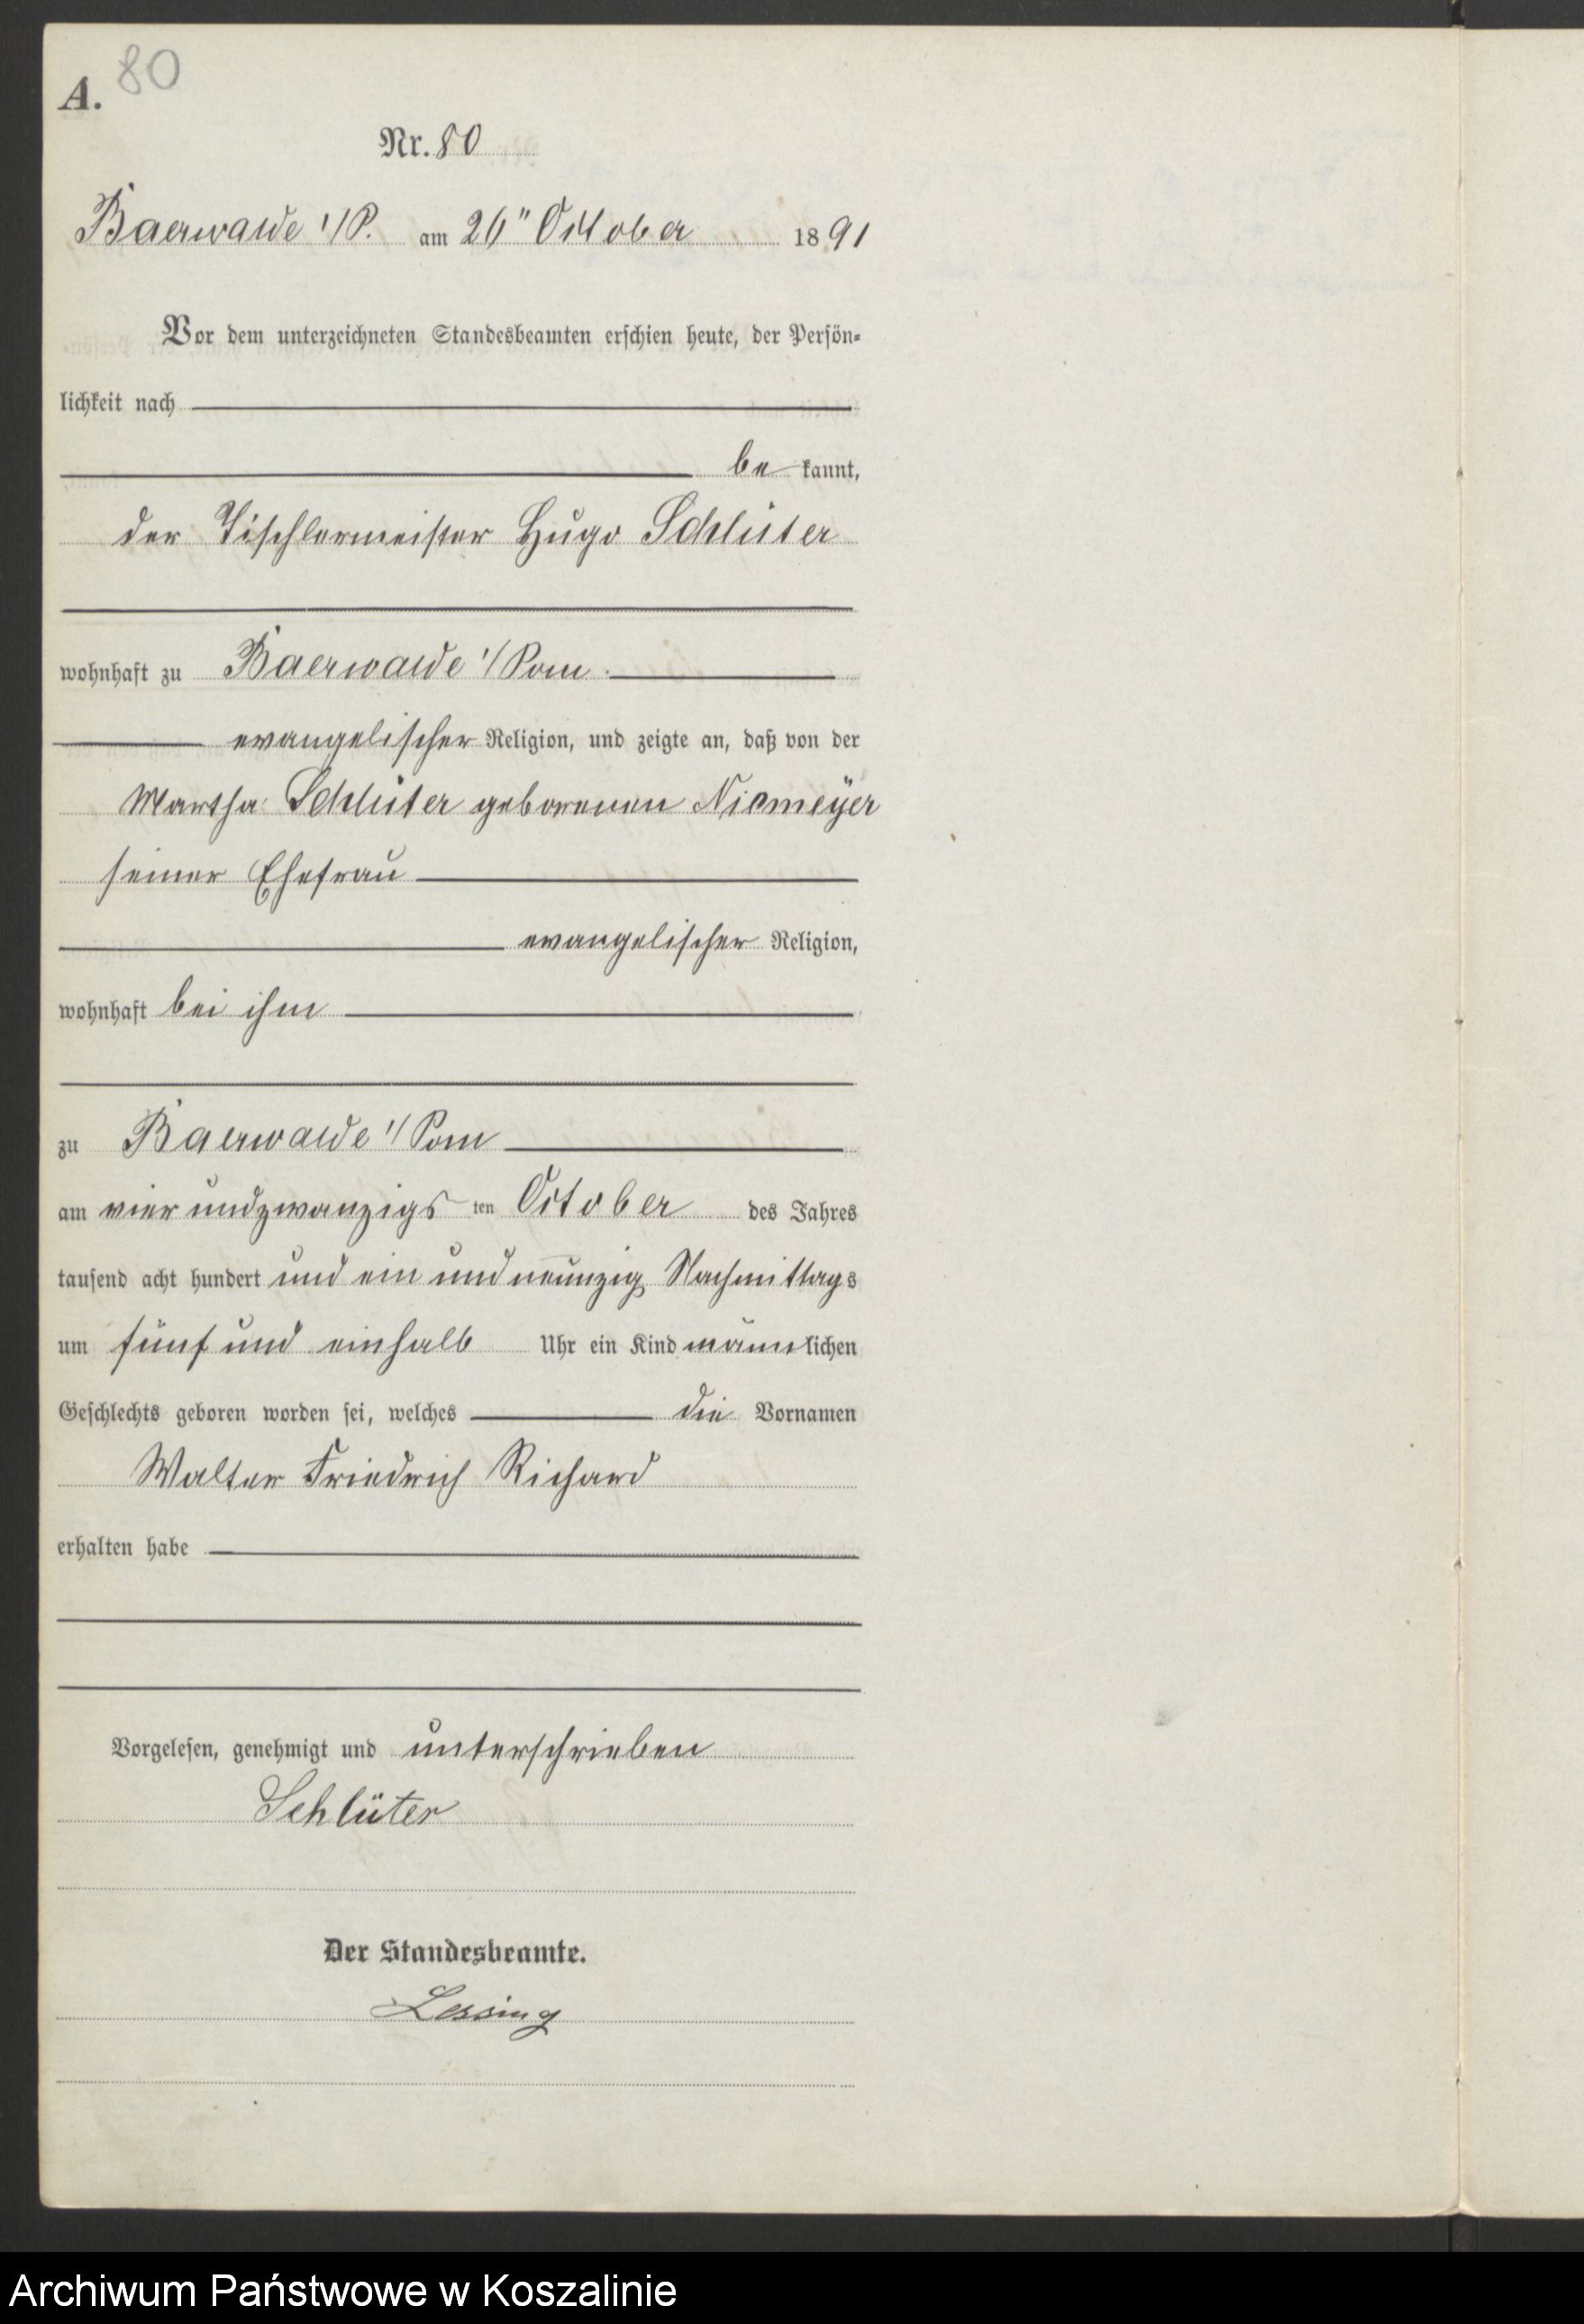 A. 80
Nr. 80
Baerwalde i/P. am 26" October 1891
Vor dem unterzeichneten Standesbeamten erschien heute, der Persön-
lichkeit nach
be kannt,
der Tischlermeister Hugo Schlüter
wohnhaft zu Baerwalde i/Pom.
evangelischer Religion, und zeigte an, daß von der
Martha Schlüter geborenen Niemeÿer
seiner Ehefrau
evangelischer Religion,
wohnhaft bei ihm
zu Baerwalde i/Pom
am vier und zwanzigs ten October des Jahres
tausend acht hundert und ein und neunzig Nachmittags
um fünf und einhalb Uhr ein Kind männlichen
Geschlechts geboren worden sei, welches die Vornamen
Walter Friedrich Richard
erhalten habe
Vorgelesen, genehmigt und unterschrieben
Schlüter
Der Standesbeamte.
Lessing
Archiwum Państwowe w Koszalinie